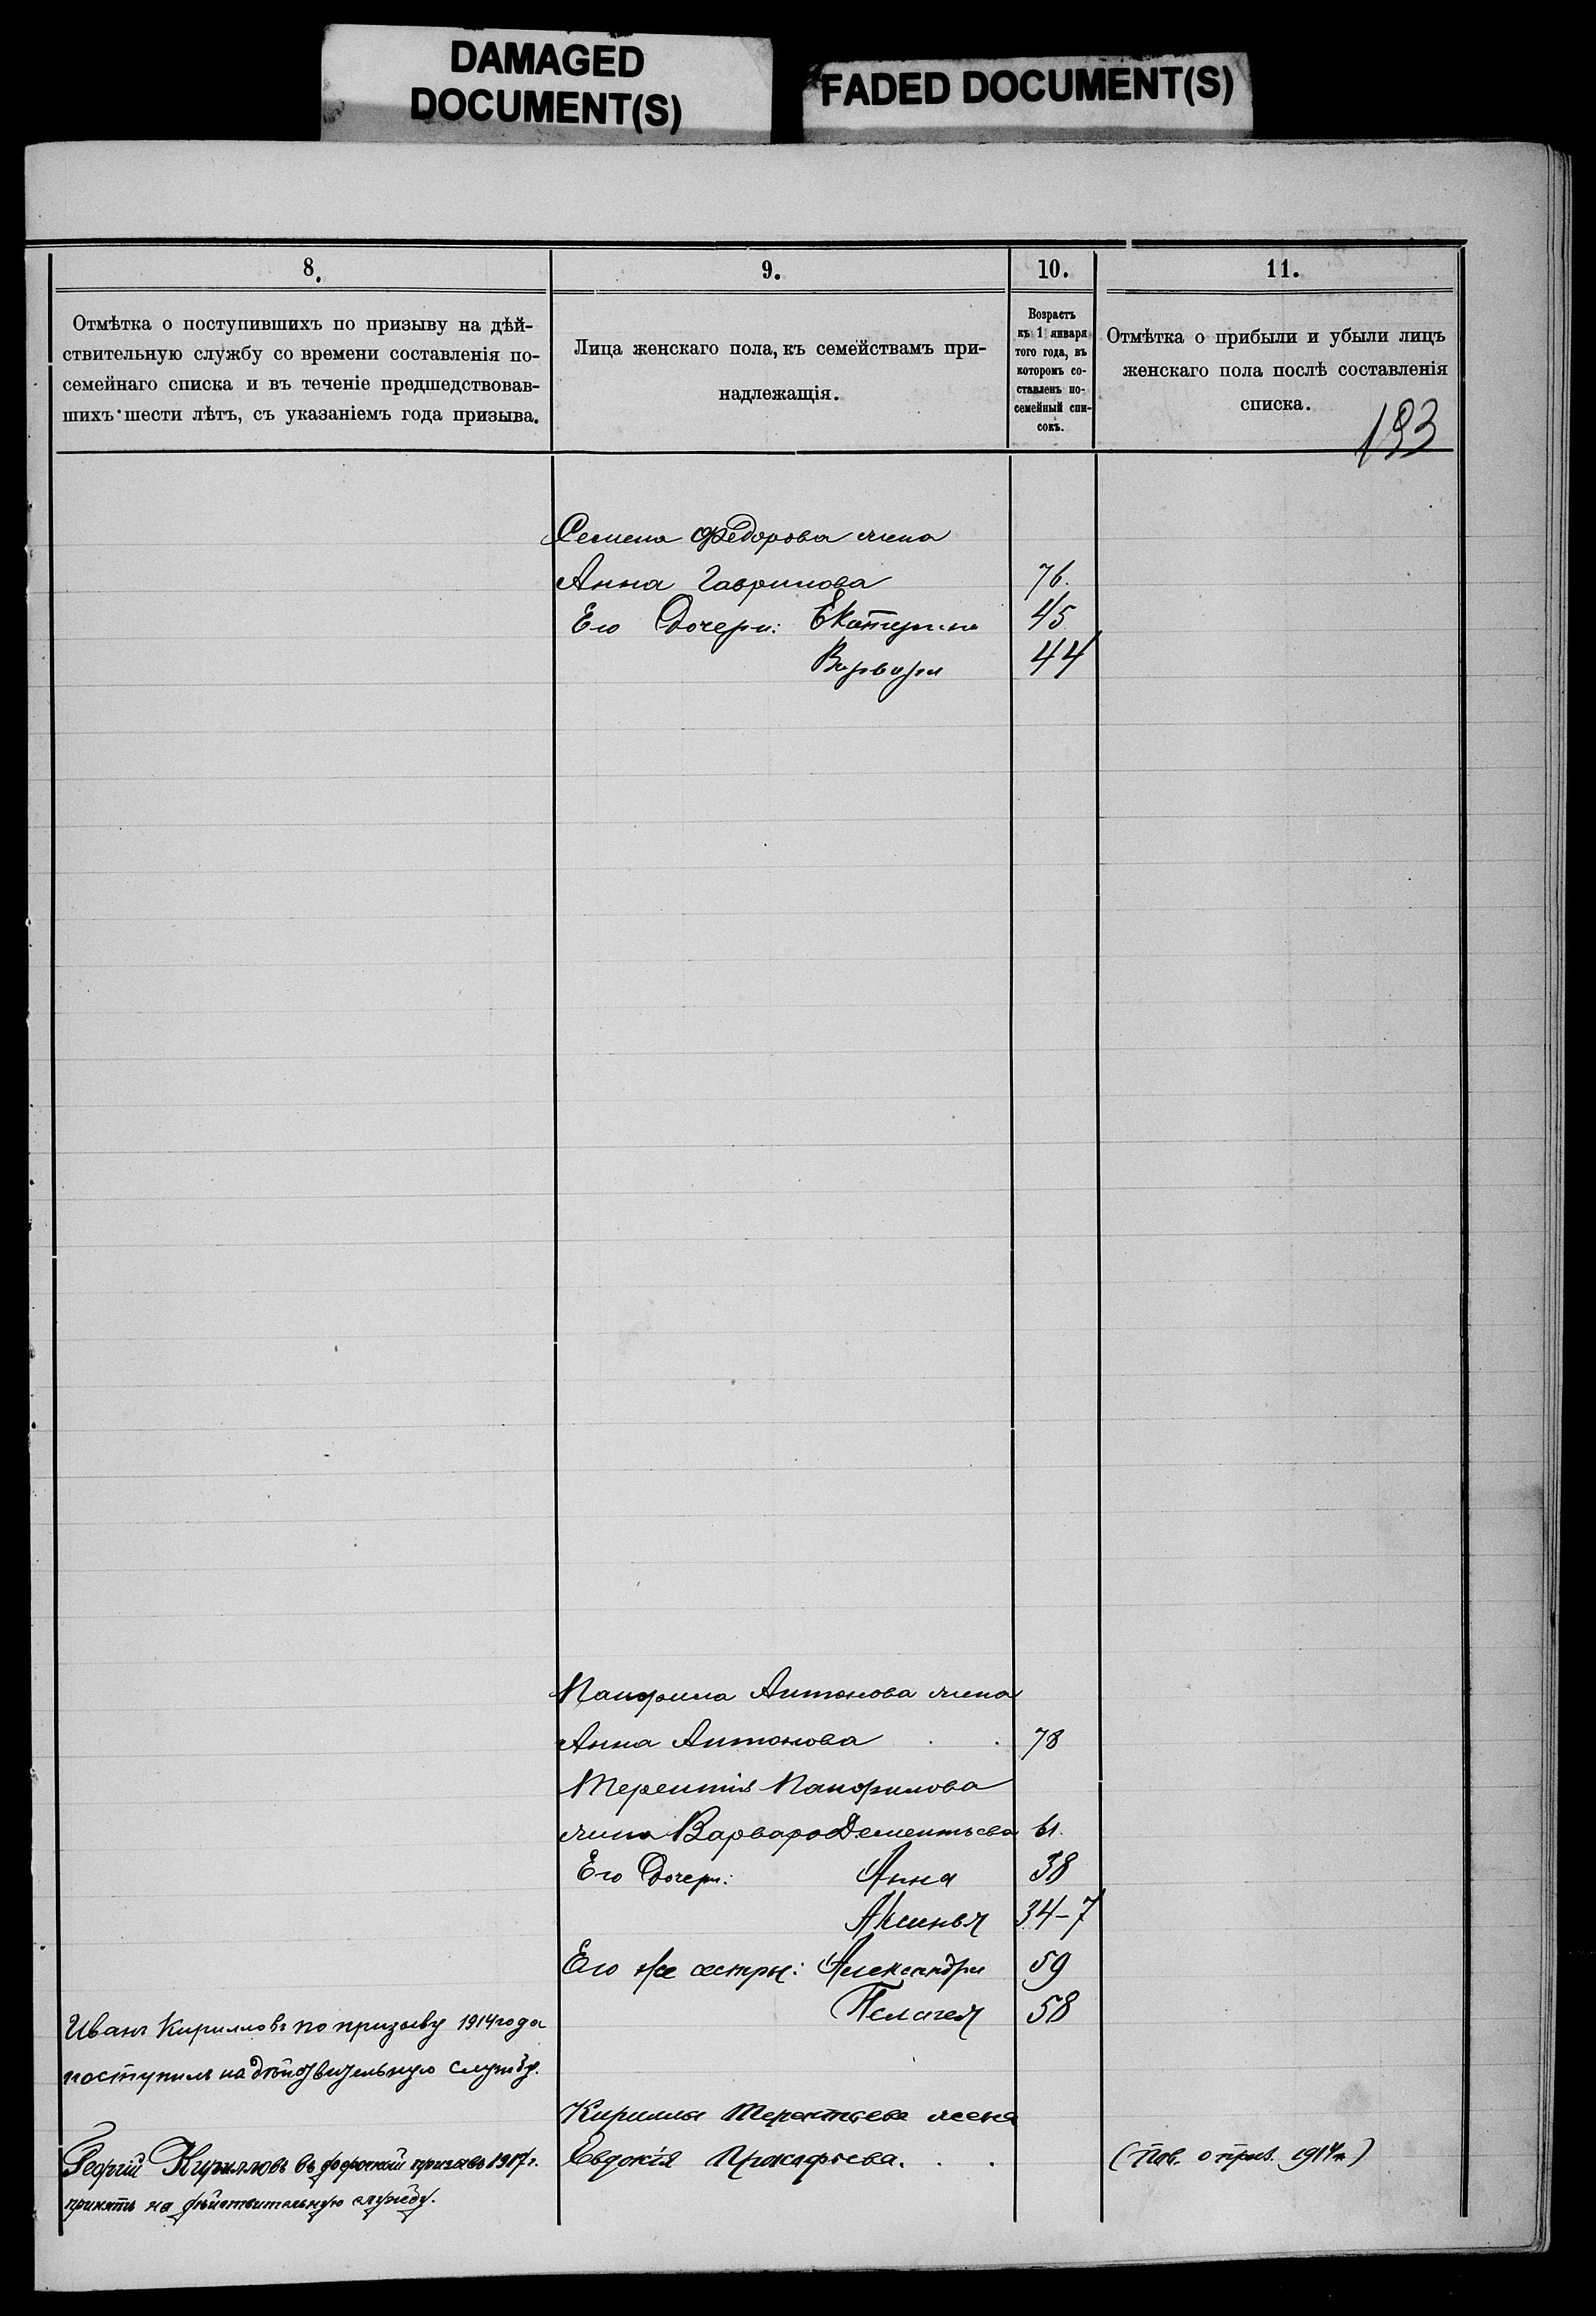 DAMAGED
DOCUMENT(S)
FADED DOCUMENT(S)
8.
9.
10.
11.
Отмѣтка о поступившихъ по призыву на дѣй-
ствительную службу со времени составленія по-
семейнаго списка и въ теченіе предшедствовав-
шихъ шести лѣтъ, съ указаніемъ года призыва.
Лица женскаго пола, къ семействамъ при-
надлежащія.
Возрастъ
къ 1 января
того года, въ
которомъ со-
ставленъ по-
семейный спи-
сокъ.
Отмѣтка о прибыли и убыли лицъ
женскаго пола послѣ составленія
списка.
193
Семена Федорова жена
Анна Гаврилова 76.
Его дочери: Екатерина 45
Варвара 44
Панфила Антонова жена
Анна Антонова . . 78
Терентія Панфилова
жена Варвара Дементьева 61.
Его дочери: Анна 38
Аксинья 34-7
Его же сестры: Александра 59
Пелагея 58
Иванъ Кирилловъ по призыву 1914 года
поступилъ на дѣйствительную службу.
Кирилла Терентьева жена
Евдокія Прокофьева. . .
Георгій Кирилловъ въ призывъ 1917 г.
принятъ на дѣйствительную службу.
1914 г.)